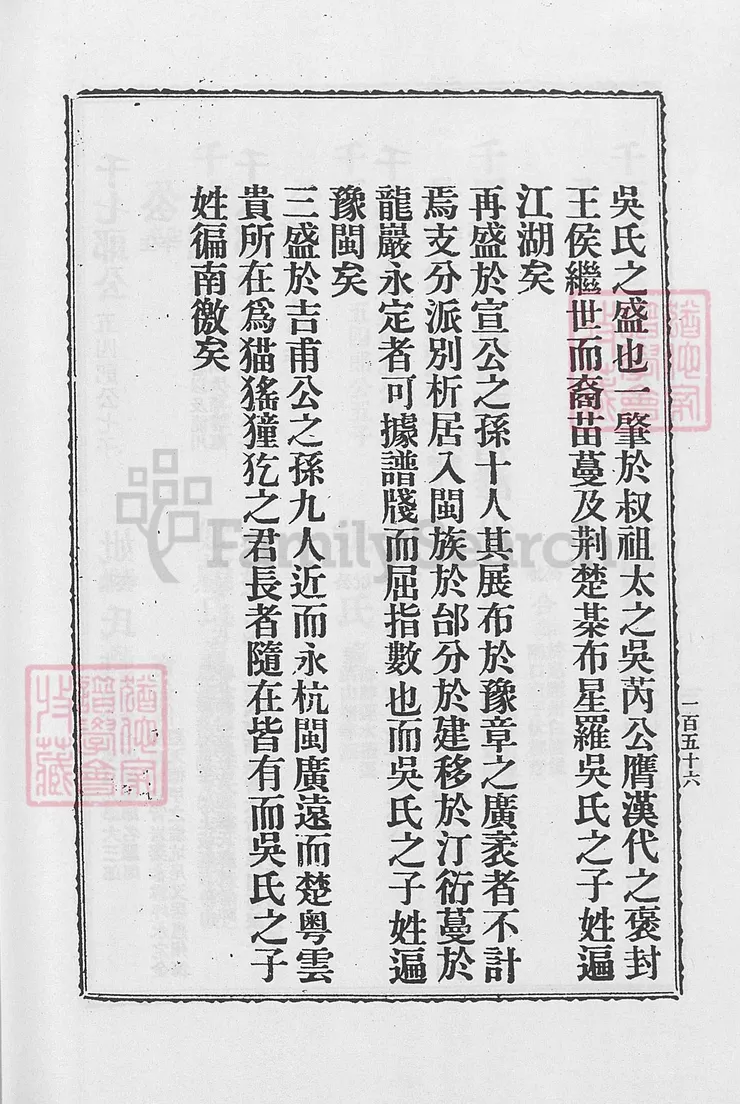 吳氏之盛也一肇於叔祖太之吳芮公膺漢代之褒封
王侯繼世而裔苗蔓及荆楚棊布星羅吳氏之子姓遍
江湖矣
再盛於宣公之孫十人其展布於豫章之廣袤者不計
焉支分派別析居入閩族於邰分於建移於汀衍蔓於
龍巖永定者可據譜牋而屈指數也而吳氏之子姓遍
豫閩矣
三盛於吉甫公之孫九人近而永杭閩廣遠而楚粤雲
貴所在爲猫猺獞犵之君長者隨在皆有而吳氏之子
姓徧南徼矣
一百五十六
FamilySearch